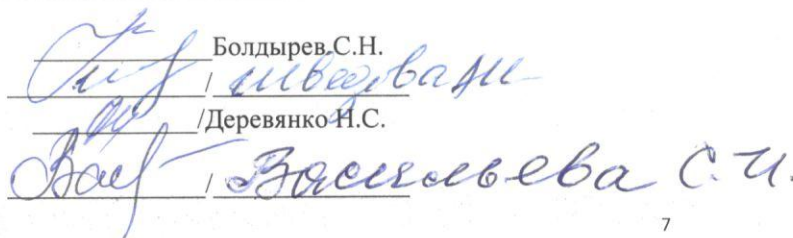 Болдырев С.Н.
/ Шведова
/Деревянко Н.С.
/ Васильева С.И.
7